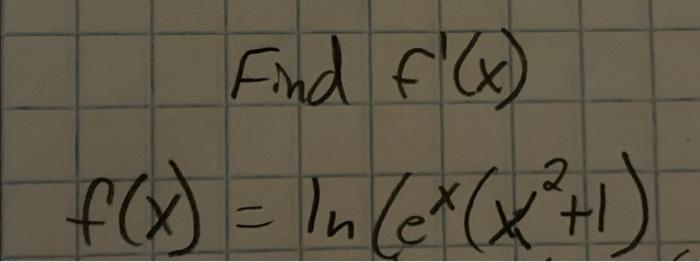 Find f'(x)
f(x) = ln(eˣ(x²+1)